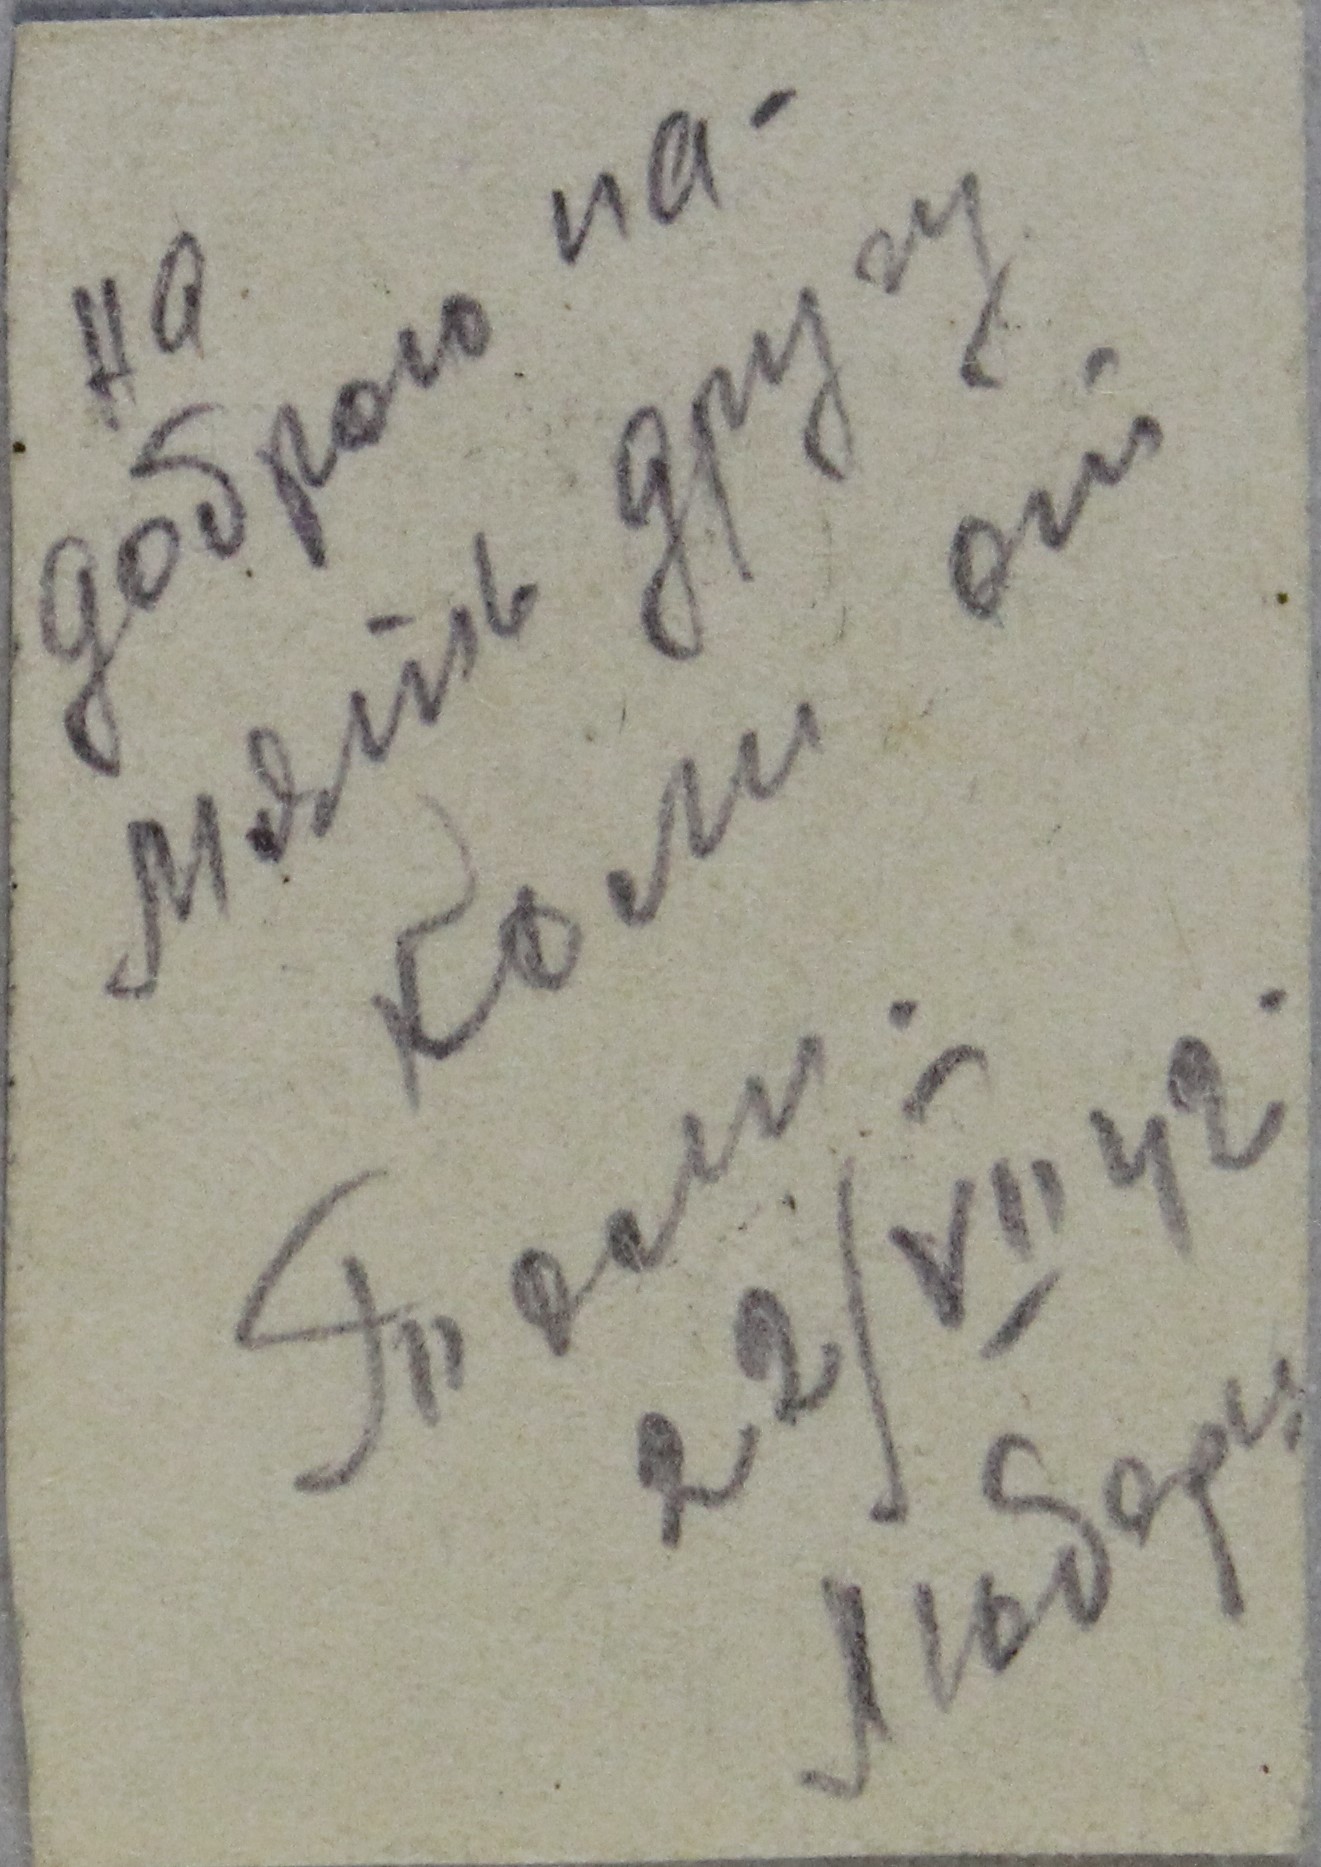 на
доброю па-
мдять другу
Коли от
Толи.
22/VII 42.
Люберцы